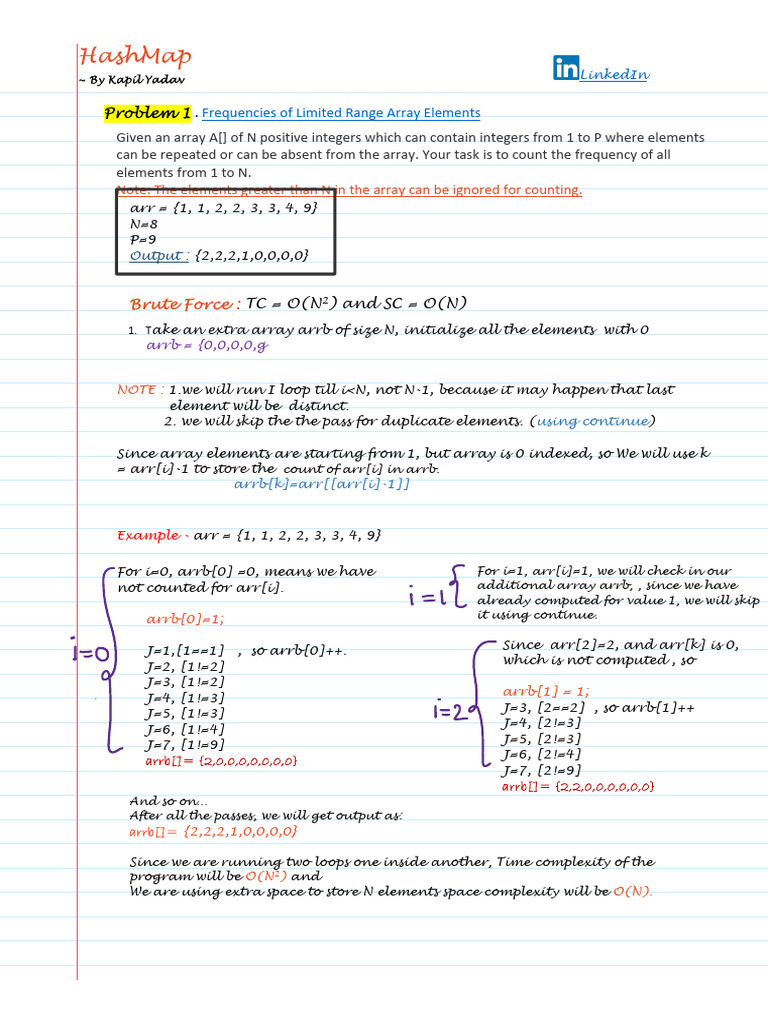 HashMap
~ By Kapil Yadav
in LinkedIn
Problem 1 . Frequencies of Limited Range Array Elements
Given an array A[] of N positive integers which can contain integers from 1 to P where elements
can be repeated or can be absent from the array. Your task is to count the frequency of all
elements from 1 to N.
Note: The elements greater than N in the array can be ignored for counting.
arr = {1, 1, 2, 2, 3, 3, 4, 9}
N=8
P=9
Output : {2,2,2,1,0,0,0,0}
Brute Force : TC = O(N²) and SC = O(N)
1. Take an extra array arrb of size N, initialize all the elements with 0
arrb = {0,0,0,0,g
NOTE : 1.we will run I loop till i<N, not N-1, because it may happen that last
element will be distinct.
2. we will skip the the pass for duplicate elements. (using continue)
Since array elements are starting from 1, but array is 0 indexed, so We will use k
= arr[i]-1 to store the count of arr[i] in arrb.
arrb[k]=arr[[arr[i]-1]]
Example - arr = {1, 1, 2, 2, 3, 3, 4, 9}
i=0
For i=0, arrb[0] =0, means we have
not counted for arr[i].
arrb[0]=1;
J=1,[1==1] , so arrb[0]++.
J=2, [1!=2]
J=3, [1!=2]
J=4, [1!=3]
J=5, [1!=3]
J=6, [1!=4]
J=7, [1!=9]
arrb[]= {2,0,0,0,0,0,0,0}
i=1
For i=1, arr[i]=1, we will check in our
additional array arrb, , since we have
already computed for value 1, we will skip
it using continue.
i=2
Since arr[2]=2, and arr[k] is 0,
which is not computed , so
arrb[1] = 1;
J=3, [2==2] , so arrb[1]++
J=4, [2!=3]
J=5, [2!=3]
J=6, [2!=4]
J=7, [2!=9]
arrb[]= {2,2,0,0,0,0,0,0}
And so on...
After all the passes, we will get output as:
arrb[]= {2,2,2,1,0,0,0,0}
Since we are running two loops one inside another, Time complexity of the
program will be O(N²) and
We are using extra space to store N elements space complexity will be O(N).